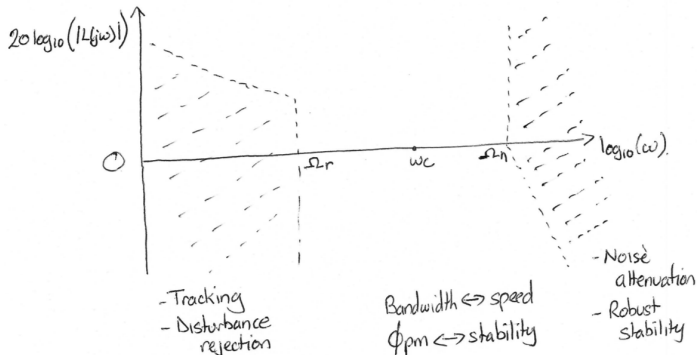 20 log₁₀(|L(jω)|)
O
Ωr
ωc
Ωn
log₁₀(ω).
- Tracking
- Disturbance
rejection
Bandwidth ↔ speed
ϕpm ↔ stability
- Noise
attenuation
- Robust
stability